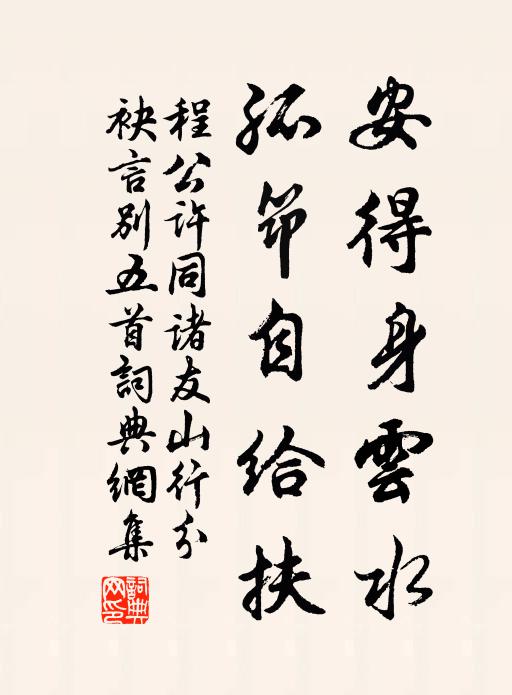 安得身雲水
孤笻自给扶
程公许同诸友山行分
袂言別五首詞典網集
詞典